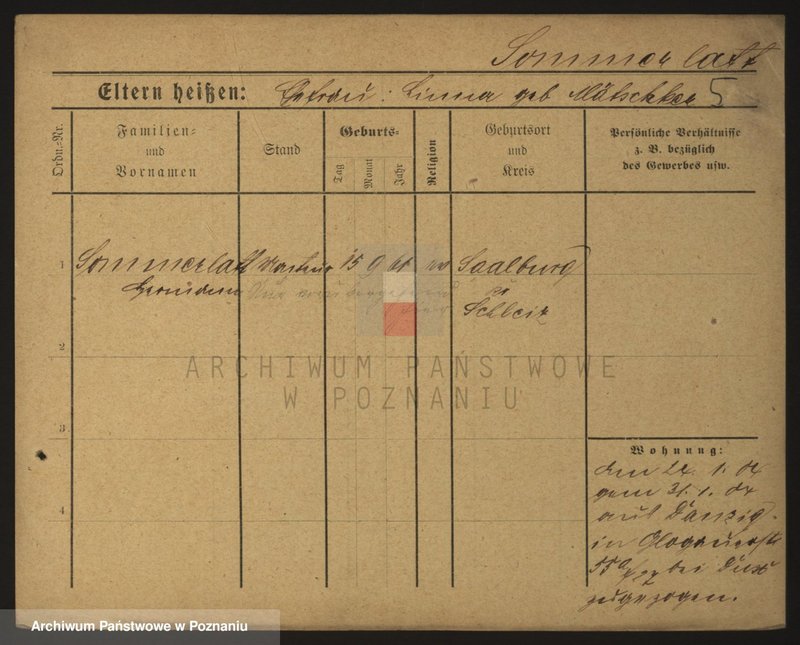 Sommerlatt
Eltern heißen: Gefrau: Linna geb Mätschker 5
Ordn.-Nr.
Familien-
und
Vornamen
Stand
Geburts-
Tag
Monat
Jahr
Religion
Geburtsort
und
Kreis
Persönliche Verhältnisse
z. B. bezüglich
des Gewerbes usw.
1 Sommerlatt 15 9 61 ev Saalburg
Hermann
Schleiz
ARCHIWUM PAŃSTWOWE
W POZNANIU
2
3
4
Wohnung:
den 22. 1. 04
gem 31. 1. 04
aus Danzig
in Glogauerstr
bei
zugezogen.
Archiwum Państwowe w Poznaniu